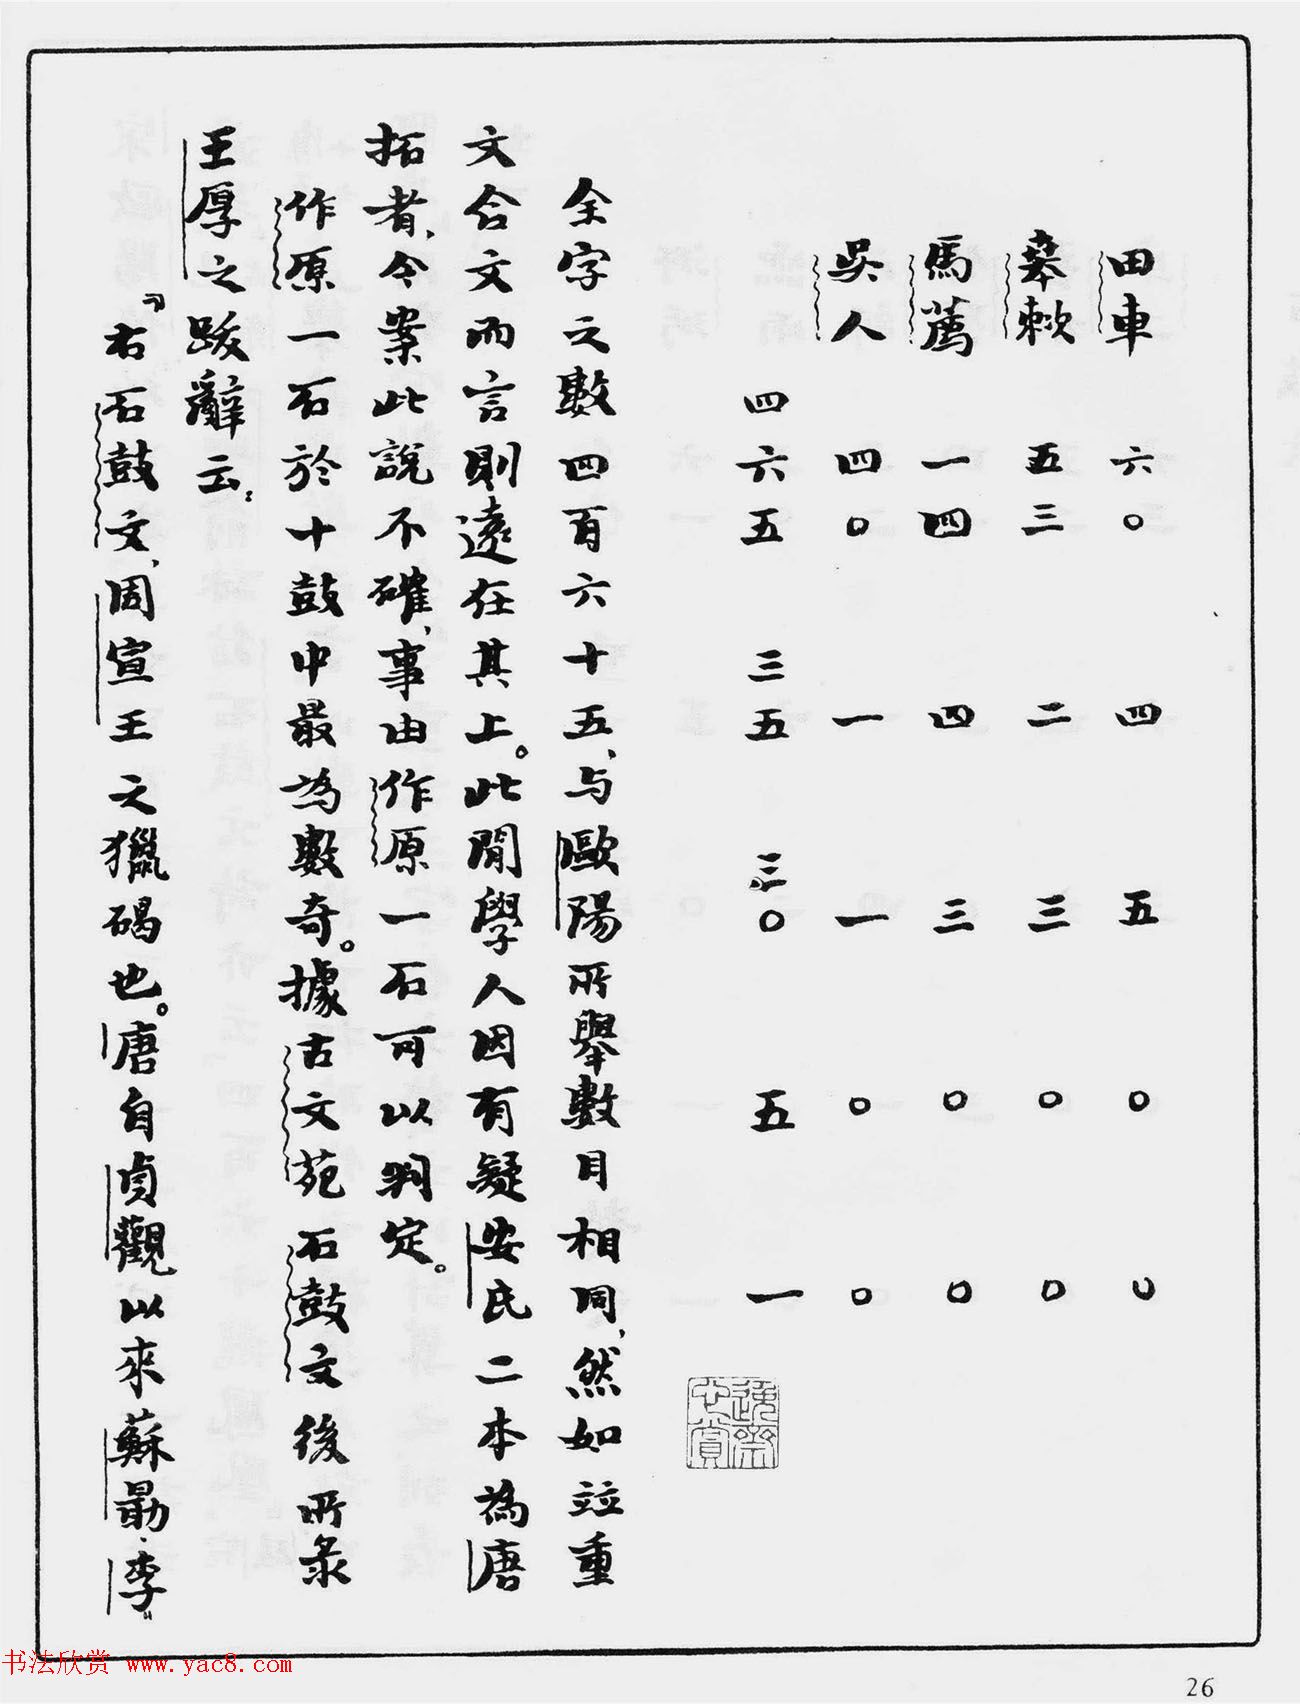 田車 六〇 四 五 〇 〇
𦍒敕 五三 二 三 〇 〇
馬薦 一四 四 三 〇 〇
吳人 四〇 一 一 〇 〇
四六五 三五 三〇 五 一
全字之數四百六十五、与歐陽所舉數目相同、然如竝重
文合文而言則遠在其上。此間學人因有疑安氏二本為唐
拓者、今案此說不確、事由作原一石可以判定。
作原一石於十鼓中最為數奇。據古文苑石鼓文後所錄
王厚之跋辭云：
『右石鼓文、周宣王之獵碣也。唐自貞觀以來蘇勗、李"
逸齋
心賞
书法欣赏 www.yac8.com
26